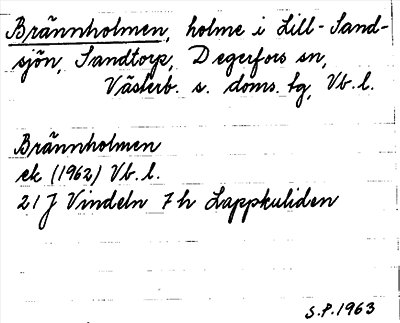 Brännholmen, holme i Lill-Sand-
sjön, Sandtorp, Degerfors sn,
Västerb. s. doms. tg, Vb. l.
Brännholmen
ek (1962) Vb. l.
21 J Vindeln 7 h Lappkuliden
S.P. 1963